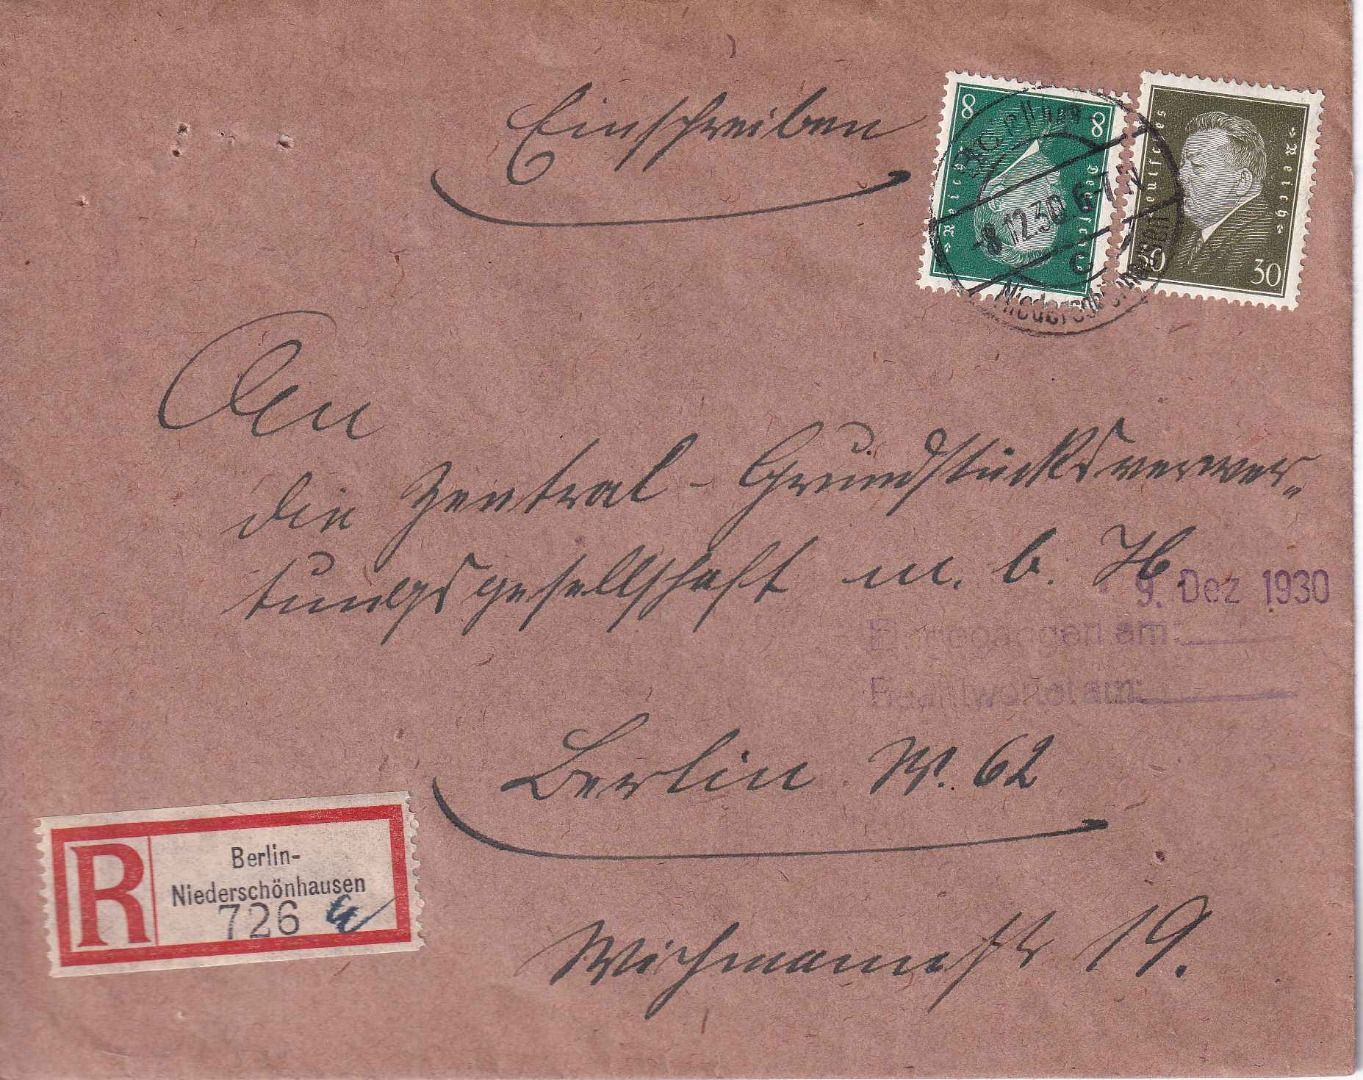 Einschreiben
8 8
Deutsches Reich
Deutsches Reich
30 30
Berlin
-8.12.30. 6-7 N
c
Niederschönhausen
An
die Zentral-Grundstücksverwer-
tungsgesellschaft m. b. H.
9. Dez 1930
Eingegangen am:
Beantwortet am:
Berlin W. 62
Wichmannstr 19.
R
Berlin-
Niederschönhausen
726